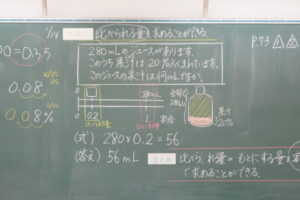 1/14
比べられる量を求めることができる。
P.73
280mLのジュースがあります。
このうち果汁は20%ふくまれています。
このジュースの果汁は何mLですか。
0.35
0.08
0.08%
0.2
果汁
20%
(式) 280×0.2=56
(答え) 56mL
まとめ
比べられる量=もとにする量×割合
で求めることができる。